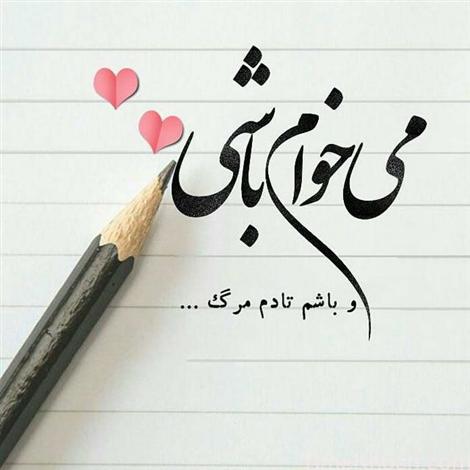 می خوام باشی
و باشم تادم مرگ ...